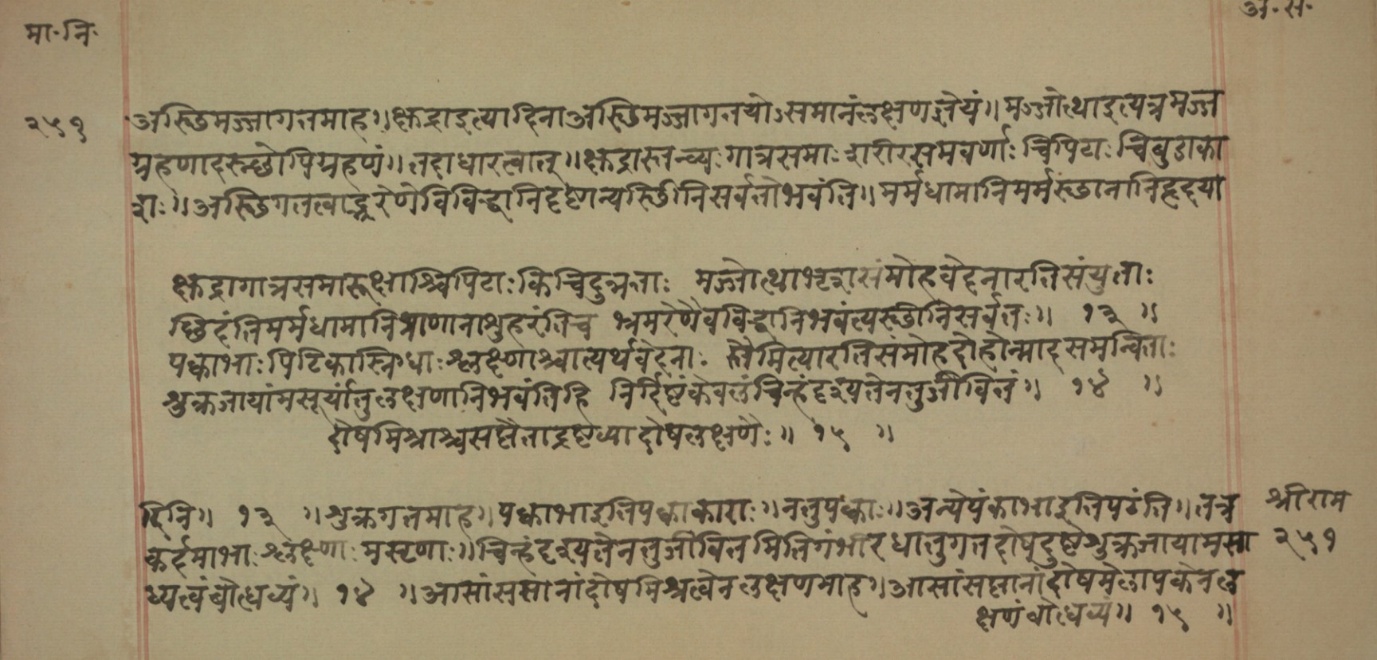 मा॰ नि॰
अ॰ स॰
२५१
अस्थिमज्जागतमाह॥ क्षुद्राइत्यादिना अस्थिमज्जागतयोः समानंलक्षणज्ञेयं॥ मज्जोत्थाइत्यत्रमज्ज
ग्रहणादस्थ्नोपिग्रहणं॥ तदाधारत्वात्॥ क्षुद्रास्तन्व्यः गात्रसमाः शरीरसमवर्णाः चिपिटाः चिबुडाका
राः॥ अस्थिगतत्वाद्भ्रमरेणेवविद्धानिदृष्टान्यस्थीनिसर्वतोभवंति॥ मर्मधामानिमर्मस्थानानिहृदया
क्षुद्रागात्रसमारूक्षाश्चिपिटाः किंचिदुन्नताः मज्जोत्थाभृशसंमोहवेदनारतिसंयुताः
छिंदंतिमर्मधामानिप्राणानाशुहरंतिच भ्रमरेणैवविद्धानिभवंत्यस्थीनिसर्वतः॥ १३ ॥
पक्वाभाः पिटिकास्निग्धाः श्लक्ष्णाश्चात्यर्थवेदनाः स्तैमित्यारतिसंमोहदाहोन्मादसमन्विताः
शुक्रजायांमसूर्यांतुलक्षणानिभवंतिहि निर्दिष्टंकेवलंचिन्हंदृश्यतेनतुजीवितं॥ १४ ॥
दोषमिश्राश्चसप्तैताद्रष्टव्यादोषलक्षणैः॥ १५ ॥
दिनि॥ १३ ॥ शुक्रगतमाह॥ पक्वाभाइतिपक्वाकाराः॥ नतुपक्वाः॥ अन्येपंकाभाइतिपठंति॥ तत्र
कर्दमाभाः श्लक्ष्णाः मसृणाः॥ चिन्हंदृश्यतेनतुजीवितमितिगंभीरधातुगतदोषदुष्टशुक्रजायामसा
ध्यत्वंबोधव्यं॥ १४ ॥ आसांसप्तानांदोषमिश्रत्वेनलक्षणमाह॥ आसांसप्तानांदोषमेलापकेनल
क्षणंबोधव्यं॥ १५ ॥
श्रीराम
२५१